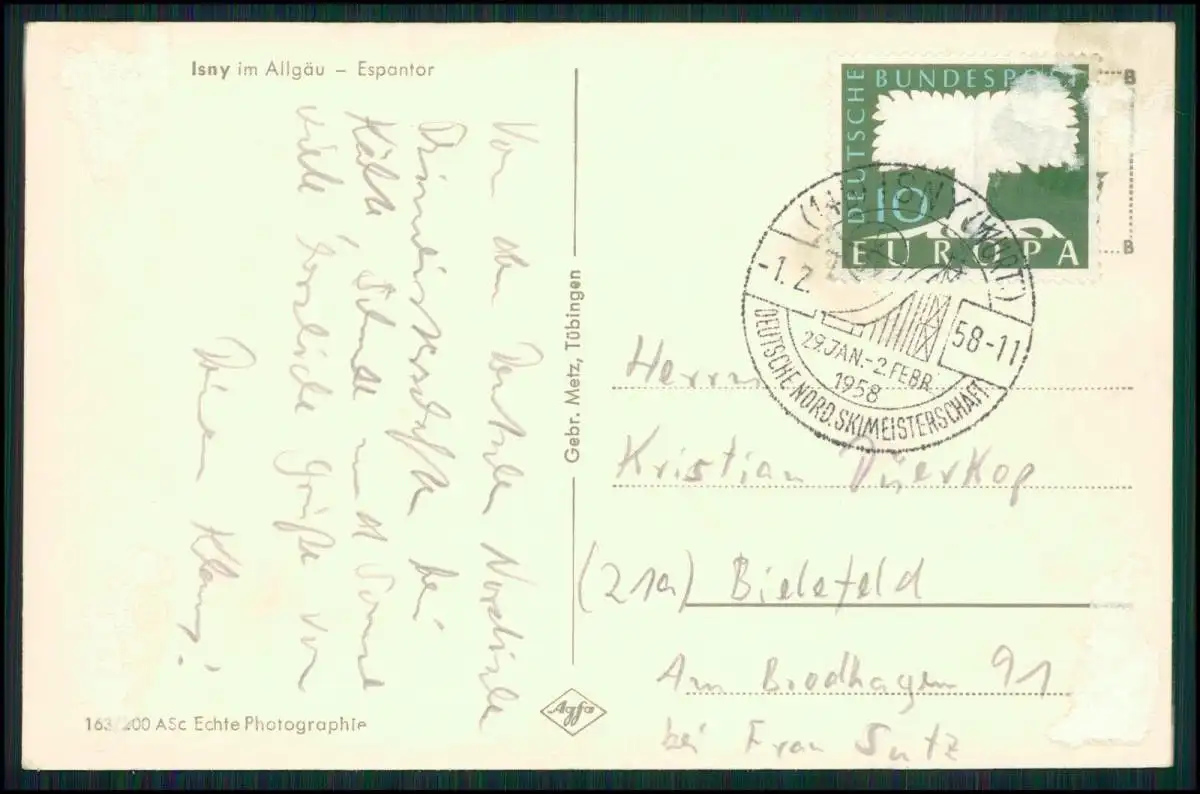 Isny im Allgäu – Espantor
Von den Deutschen Nordischen
Skimeisterschaften bei
Kälte, Schnee und Sonne
viele herzliche Grüße von
Deinem Klaus!
Gebr. Metz, Tübingen
163/200 ASc Echte Photographie
Agfa
DEUTSCHE BUNDESPOST
10
EUROPA
ISNY (WÜRTT)
-1.2.
58-11
29.JAN.-2.FEBR.
1958
DEUTSCHE NORD. SKIMEISTERSCHAFT
B
B
Herrn
Kristian Düerkop
(21a) Bielefeld
Am Brodhagen 91
bei Frau Sutz